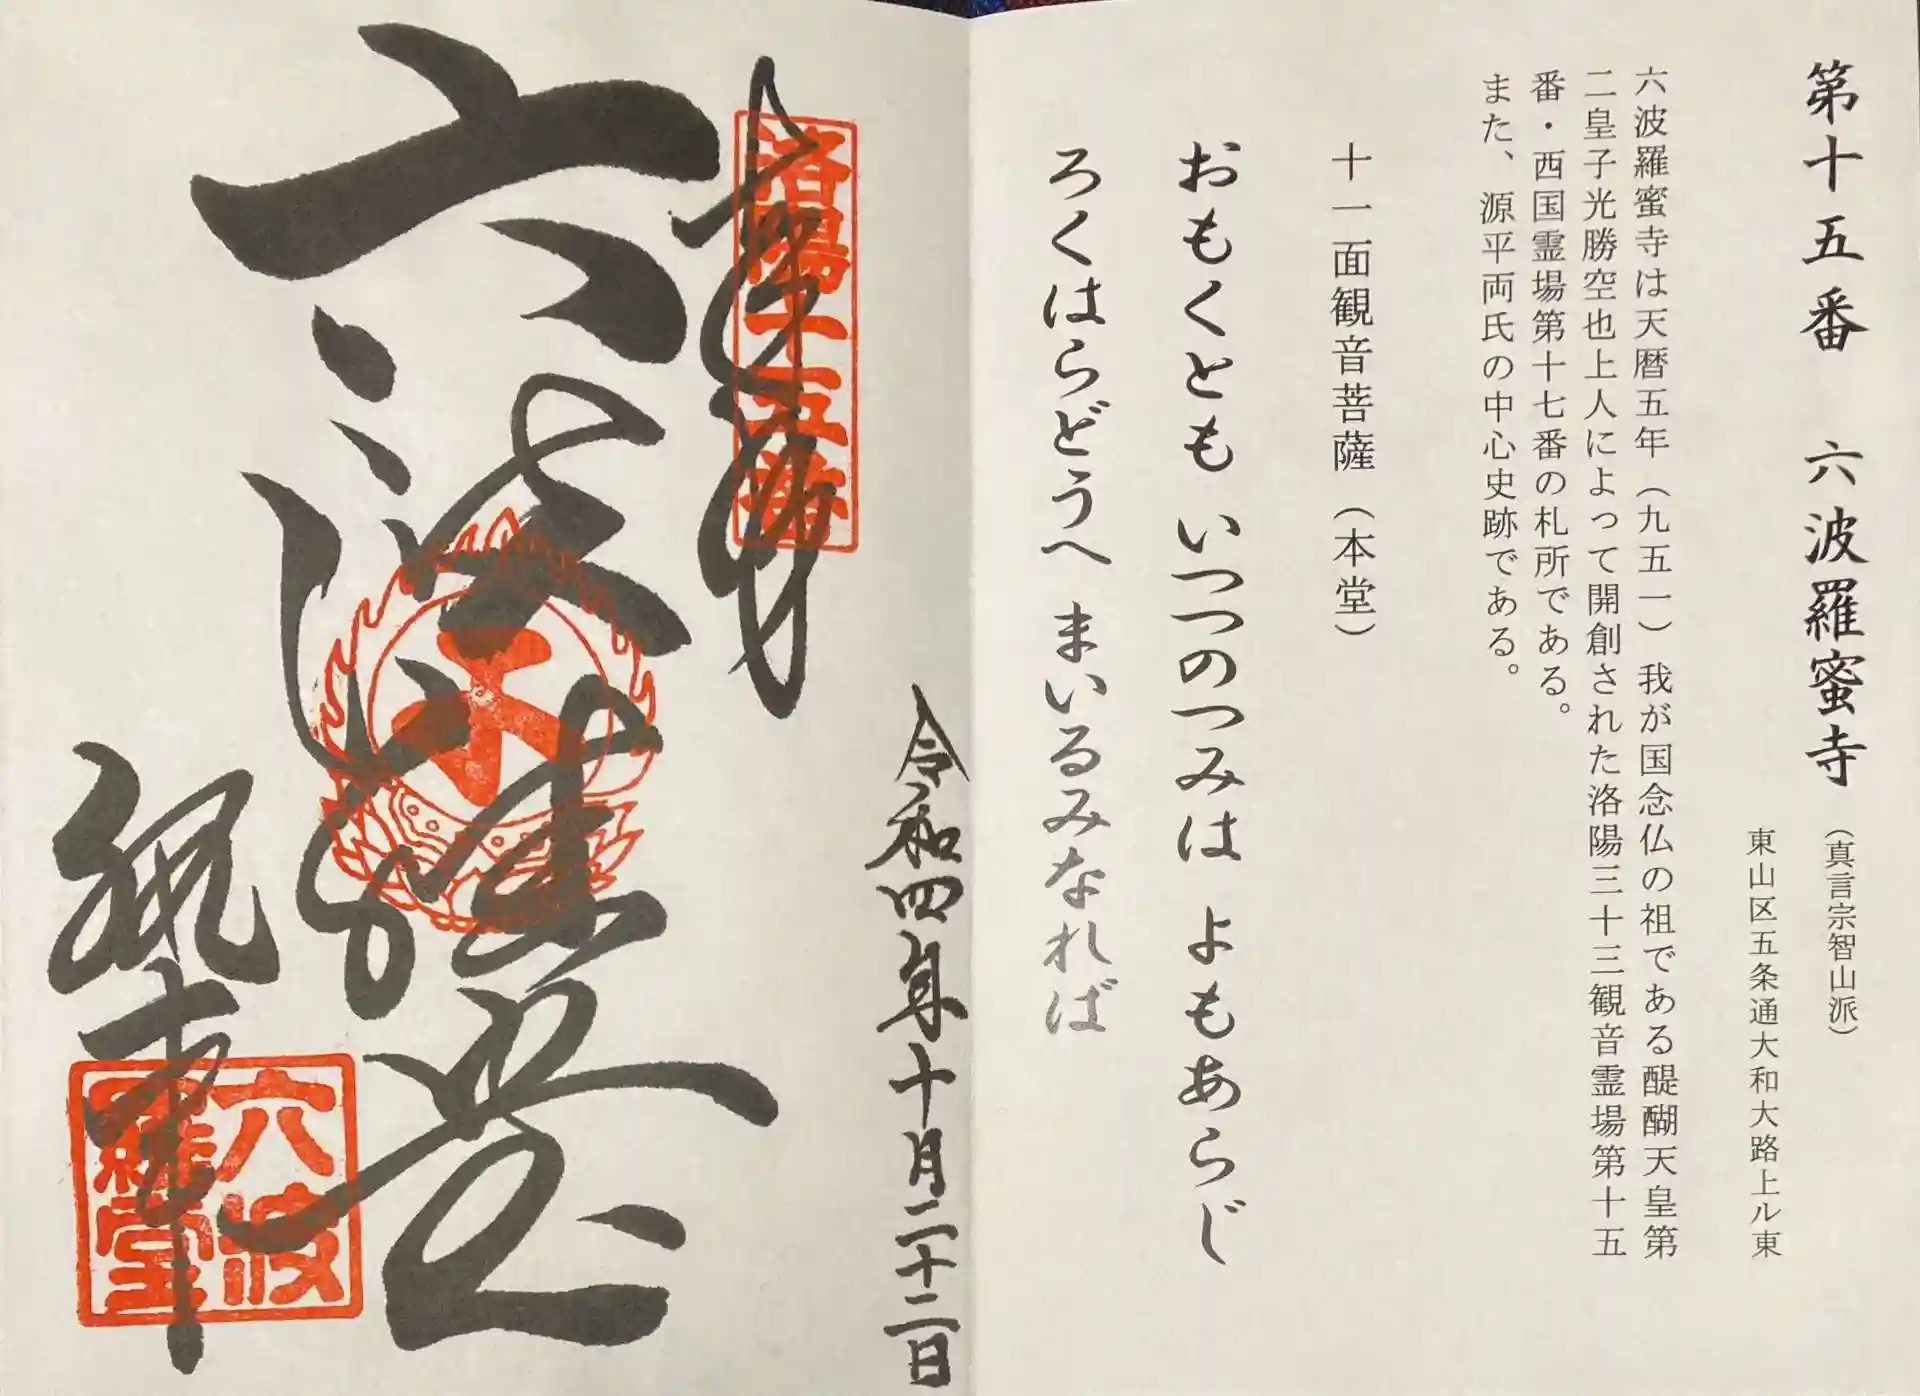 第十五番 六波羅蜜寺(真言宗智山派)
東山区五条通大和大路上ル東
六波羅蜜寺は天暦五年(九五一)我が国念仏の祖である醍醐天皇第
二皇子光勝空也上人によって開創された洛陽三十三観音霊場第十五
番・西国霊場第十七番の札所である。
また、源平両氏の中心史跡である。
十一面観音菩薩(本堂)
おもくとも いつつのつみは よもあらじ
ろくはらどうへ まいるみなれば
奉拝
洛陽十五番
令和四年十月二十二日
六波羅堂
六波
羅堂